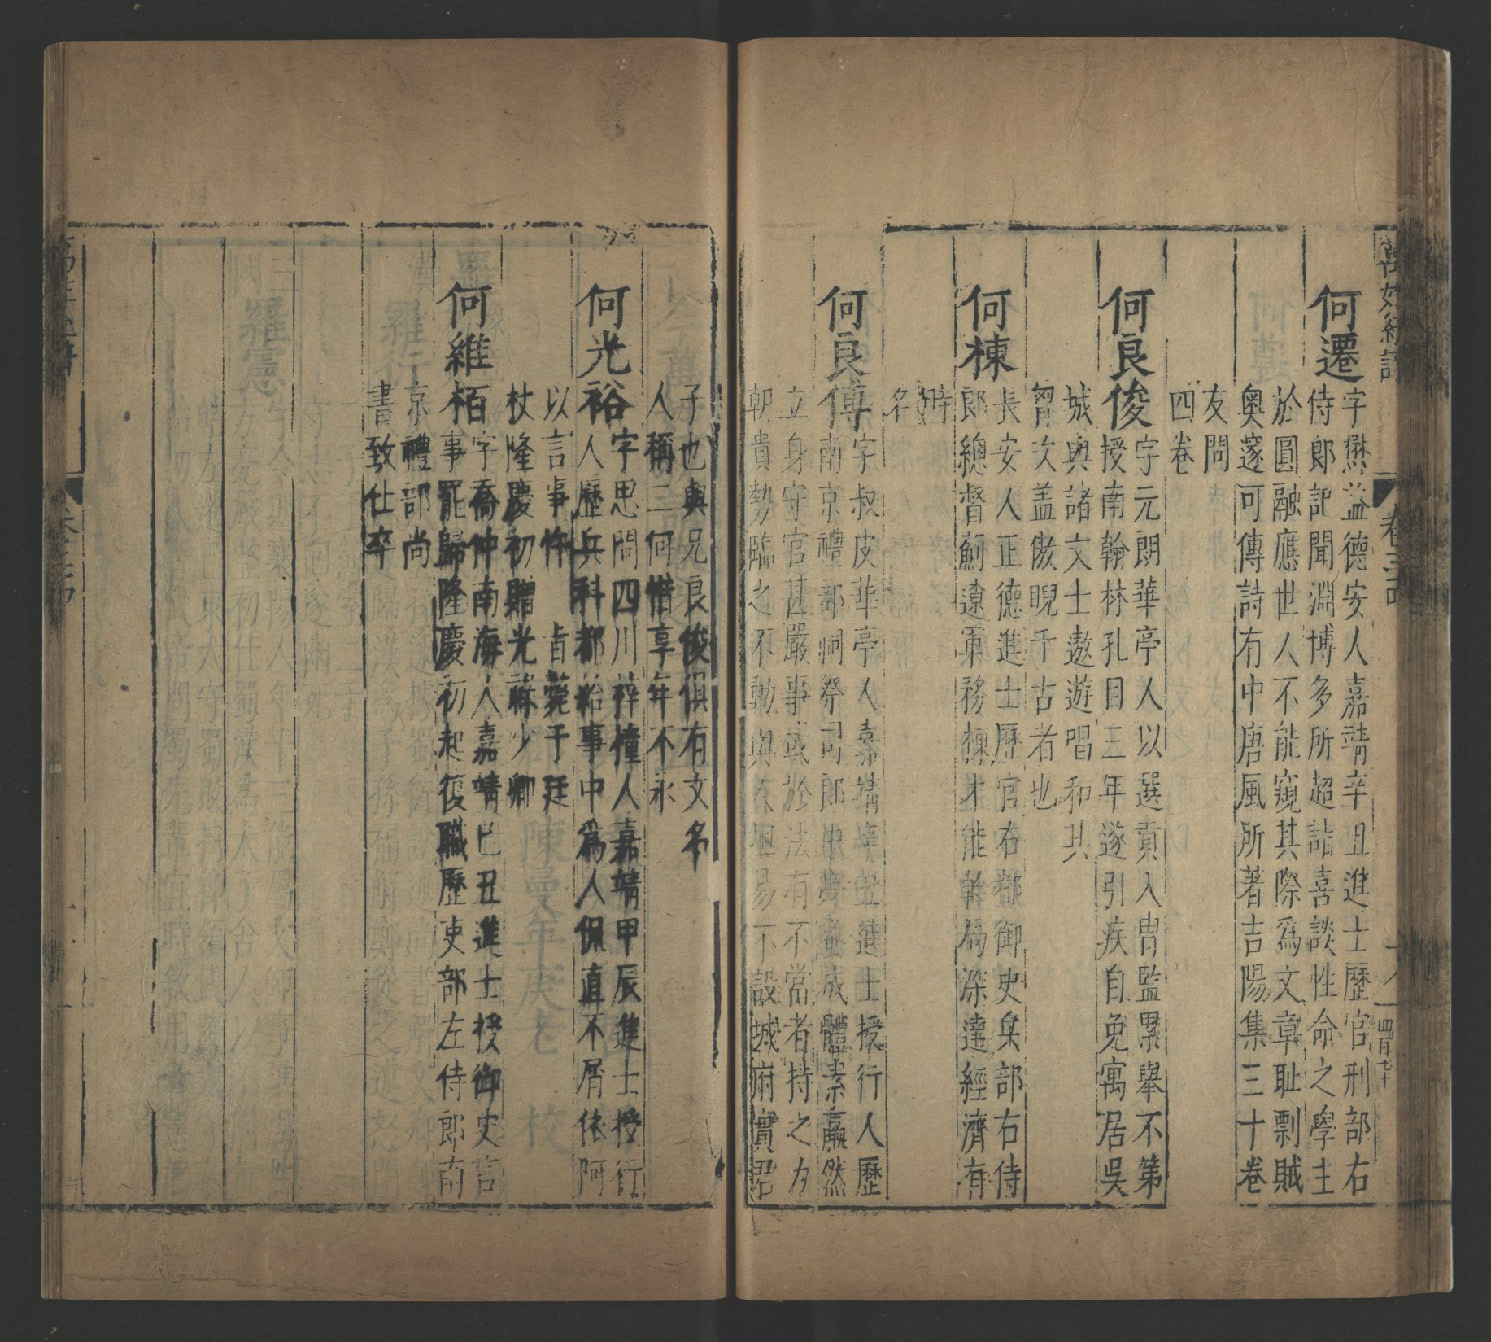 萬姓統譜
卷三十四
何遷
字懋益德安人嘉靖辛丑進士歷官刑部右
侍郎記聞淵博多所超詣喜談性命之學主
於圓融應世人不能窺其際為文章耻剽賊
奧邃可傳詩有中唐風所著吉陽集三十卷
友問
四卷
何良俊
字元朗華亭人以選貢入胄監累舉不第
授南翰林孔目三年遂引疾自免寓居吳
城與諸文士遨遊唱和其
胷次蓋傲睨千古者也
何棟
長安人正德進士歷官右都御史兵部右侍
郎總督薊遼軍務棟才能幹局深達經濟有
時
名
何良傅
字叔皮華亭人嘉靖辛丑進士授行人歷
南京禮部祠祭司郎中 體素羸然
立身守官甚嚴事或於法有不當者持之力
朝貴勢臨之不動與人坦易不設城府實君
子也與兄良俊俱有文名
人稱二何惜享年不永
何光裕
字思問四川梓橦人嘉靖甲辰進士授行
人歷兵科都給事中為人保直不屑依阿
以言事忤 旨斃于廷
杖隆慶初贈光祿少卿
何維栢
字喬仲南海人嘉靖乙丑進士授御史言
事罷歸隆慶初起復職歷吏部左侍郎南
京禮部尚
書致仕卒